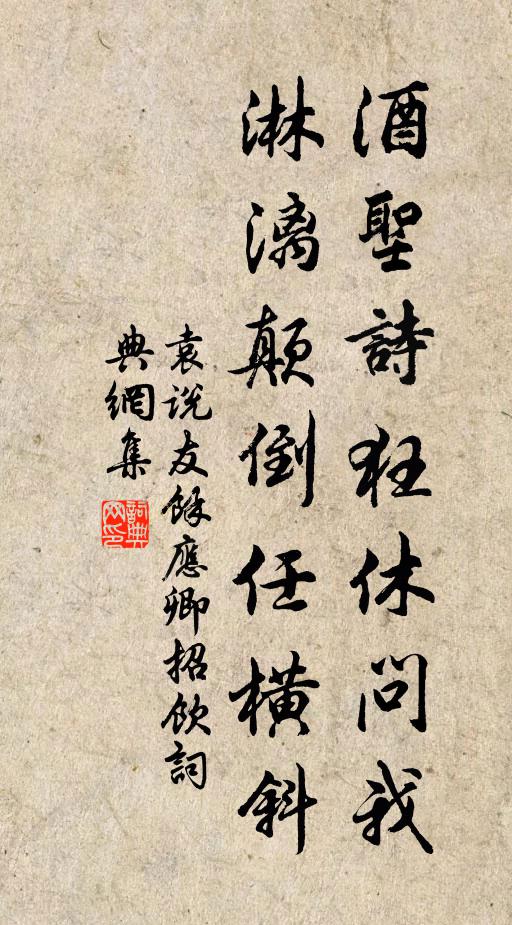 酒聖詩狂休問我
淋漓顛倒任橫斜
袁说友餘應卿招飲詞
典網集
詞典
网印